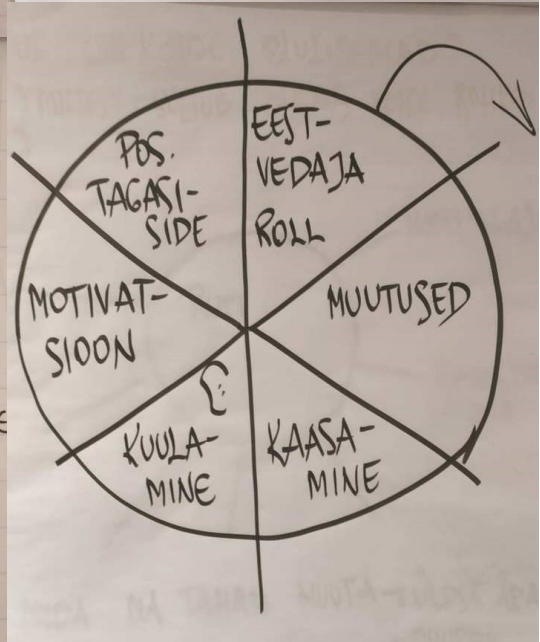 EEST-
VEDAJA
ROLL
MUUTUSED
KAASA-
MINE
KUULA-
MINE
MOTIVAT-
SIOON
POS.
TAGASI-
SIDE